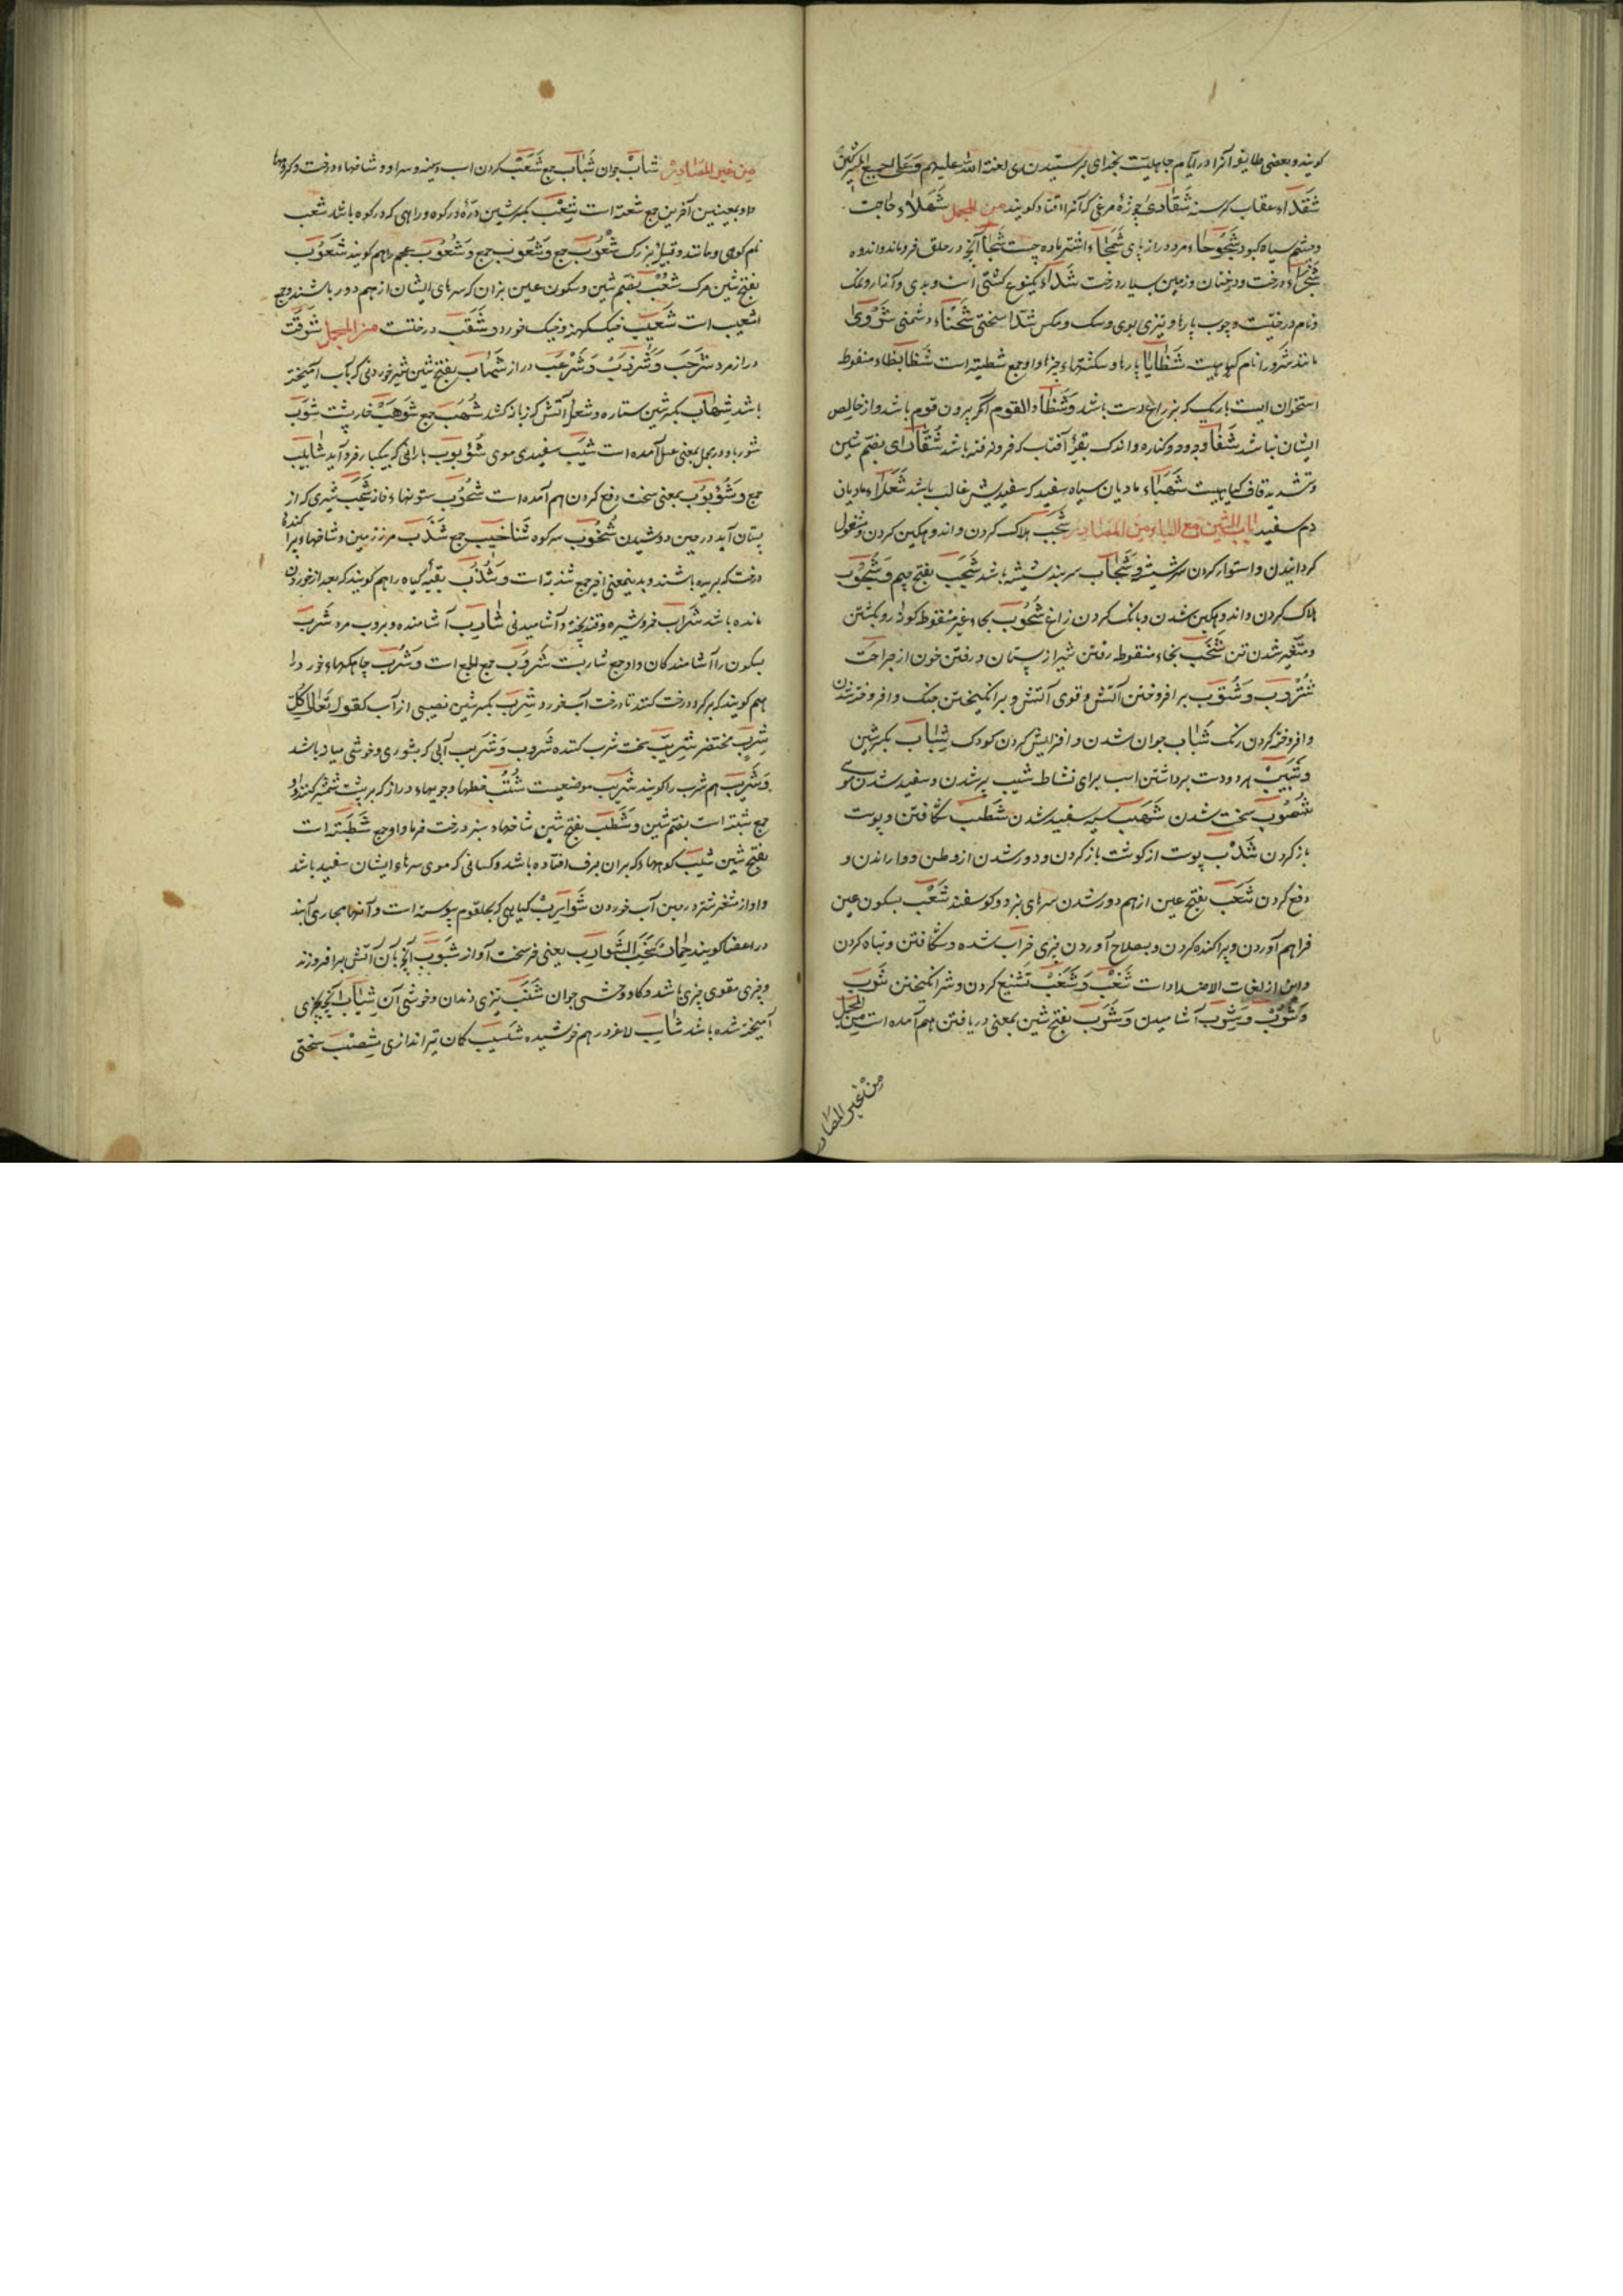 کویند و بعضی طایفه آنرا در ایّام جاهلیّت بخدای پرستیدندی لعنة الله علیهم وعلی جمیع المشرکین
شَقَذاء عقاب کرسنه شَقاذیٰ جوزهٔ مرغی که آنرا قتاد کویند من المجمل شَهْلاء حاجت
و چشم سیاه کبود شَجَوْجاء مرد دراز پای شَجَجاء اشتر ماده چست شَجا آنچه در حلق فرو ماند و اندوه
شَجْراء درخت و درختان و زمین بسیار درخت شَذاء یکنوع کشتی است و بدی و آزار و نمک
و نام درختیست و چوب پارها و تیزی بوی و سک و مکس شذا سختی شَحْناء دشمنی شَرْویٰ
مانند شرور انام کیاهیست شَظایا پارها و شکستهاء چیزها و او جمع شظیّة است شَظا بظاء منقوط
استخوان است باریک که بر ذراع دست باشد وشَظاء القوم اگر بیرون قوم باشد و از خالص
ایشان نباشد شَفا وجود و کناره و اندک بقیّهٔ آفتاب که فرو نرفته باشد شُقّارای بضم شین
و تشدید قاف کیاهیست شَهْباء مادیان سیاه سفید که سفیدیش غالب باشد شَعْلاء مادیان
دم سفید باب الشین مع الباء من المصادر شَجْب هلاک کردن و اندوهکین کردن و مشغول
کردانیدن و استوار کردن سر شیشه و شِجاب سربند شیشه باشد شَجَب بفتح جیم و شُجُوب
هلاک کردن و اندوهکین شدن و بانک کردن زاغ شُحُوب بحاء غیر منقوط کودار و بکشتن
و متغیّر شدن تن شَخْب بخاء منقوط رفتن شیر از پستان و رفتن خون از جراحت
وشُقُوب بر افروختن آتش و قوی آتش و بر انکیختن جنک و افروخته شدن
و افروخته کردن رنک شَباب جوان شدن و افزایش کردن کودک شِباب بکسر شین
و شَبِیب هر دو دست برداشتن اسب برای نشاط شَیْب پیر شدن و سفید شدن موی
شُصُوب سخت شدن شَهَب سیه سفید شدن شَطْب شکافتن و پوست
باز کردن شَذْب پوست از کوشت باز کردن و دور شدن از وطن و وا راندن و
دفع کردن شَعَب بفتح عین از هم دور شدن سرهای بز و کوسفند شَعْب بسکون عین
فراهم آوردن و پراکنده کردن و بصلاح آوردن چیزی خراب شده و شکافتن و تباه کردن
و این از لغات الاضداد است شَغْب و شَغَب تشنیع کردن و شر انکیختن شَوْب
وشُرْب وشِرْب آشامیدن و شَرْب بفتح شین بمعنی دریافتن هم آمده است من المجمل
من غیر المصادر
من غیر المصادر شابّ جوان شُبّاب جمع شُعَب کردن اسب و سینه و سر او و شاخهاء درخت و کروهها
و او بمعنیین آخرین جمع شعبه است شِعْب بکسر شین درّه در کوه و راهی که در کوه باشد شعب
نام کوهی و مانند و قبیله بزرک شُعُوب جمع و شَعُوب جمع و شُعُوب عجم را هم کویند شَعُوب
بفتح شین مرک شُعْب بضم شین و سکون عین بزان که سرهای ایشان از هم دور باشند و جمع
اشعب است شَعِیب خیک کهنه و خیک خورد و شَقَب درختیست من المجمل شوقب
دراز مرد شَرْجَب و شَوْذَب و شَرْعَب دراز شَهاب بفتح شین شیر خوردنی که بآب آمیخته
باشد شِهاب بکسر شین ستاره و شعله آتش که زبانه کشد شُهُب جمع شَوْهَب خار پشت شَوْب
شوربا و در مجمل بمعنی عسل آمده است شَیْب سفیدی موی شُؤْبُوب بارانی که بیکبار فرود آید شآبیب
جمع و شُؤْبُوب بمعنی سخت دفع کردن هم آمده است شُجُوب ستونهاء خانه شُخْب شیری که از
پستان آید در حین دوشیدن شُنْخُوب سر کوه شَناخِیب جمع شَذَب مرز زمین و شاخهاء پراکنده
درخت که بریده باشند و بدینمعنی اخیر جمع شذبة است و شَذَب بقیّه کیاه را هم کویند که بعد از خوردن
مانده باشد شَراب خمر و شیره و قند پخته و آشامیدنی شارِب آشامنده و بروت مرد شَرْب
بسکون را آشامندکان و او جمع شاربست شُرُوب جمع الجمع است و شَرَب چاهکهاء خورد را
هم کویند که بر کرد درخت کنند تا درخت آب خورد شِرْب بکسر شین نصیبی از آب کقوله تعالی کُلّ
شِرْبٍ مُحْتَضَر شِرِّیب سخت شرب کننده شَرُوب و شَرِیب آبی که بشوری و خوشی میانه باشد
و شَرِیب هم شرب را کویند شُرَیْب موضعیست شُطُب خطها و جویهاء دراز که بر پشت شمشیر کنند و او
جمع شطبة است بضم شین و شَطْب بفتح شین شاخهاء سبز درخت خرما و او جمع شَطْبَة است
بفتح شین شِیب کوهها که بران برف افتاده باشد و کسانی که موی سرهاء ایشان سفید باشد
و آواز مشفر شتر در حین آب خوردن شَوارِب رکهایی که بحلقوم پیوسته است و آنها مجاری آبند
در اعضا کویند حِمارٌ صَخِبُ الشَوارِب یعنی خر سخت آواز شَبُوب آنچه بآن آتش برافروزند
و چیزی مقوی چیزی باشد و کاو وحشی جوان شَنَب تیزی دندان و خوشی آن شِیاب آنچه بچیزی
آمیخته شده باشد شاسِب لاغر در هم خوشیده شَسِیب کمان تیراندازی شِصْب سختی